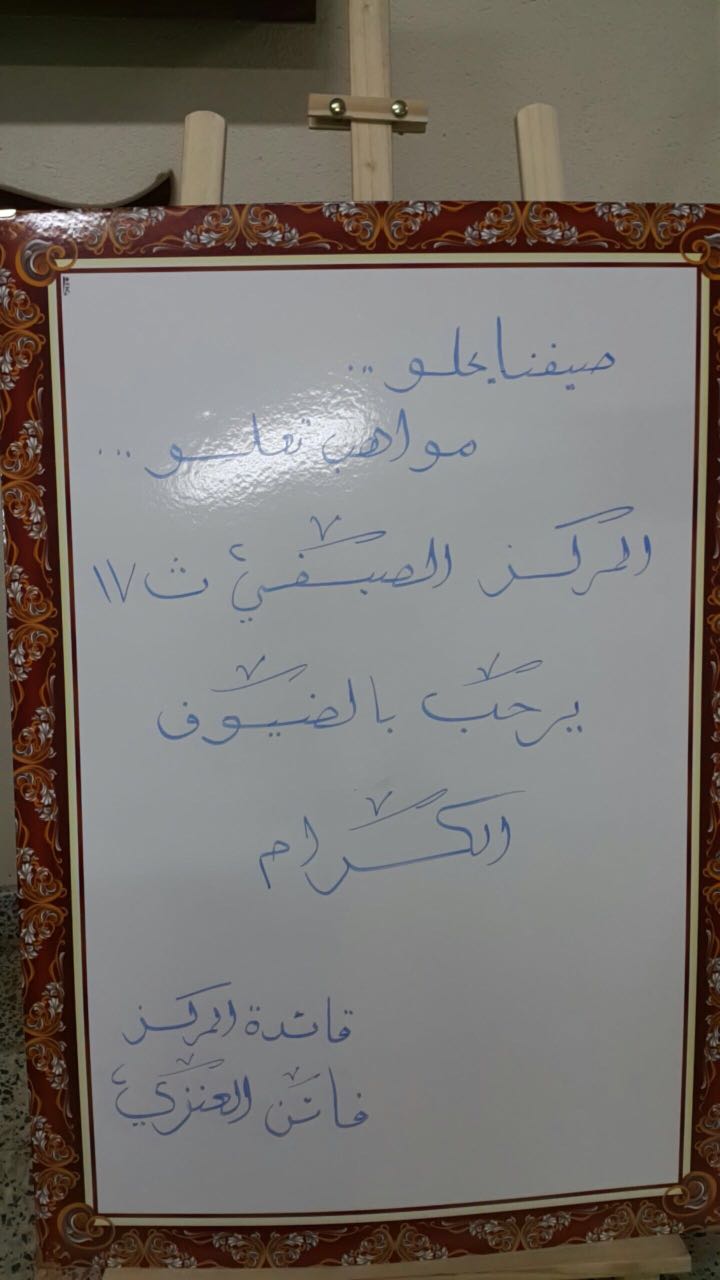 صيفنا يحلو ..
مواهب تعلو ...
المركز الصيفي ث ١٧
يرحب بالضيوف
الكرام
قائدة المركز
فاتن العنزي